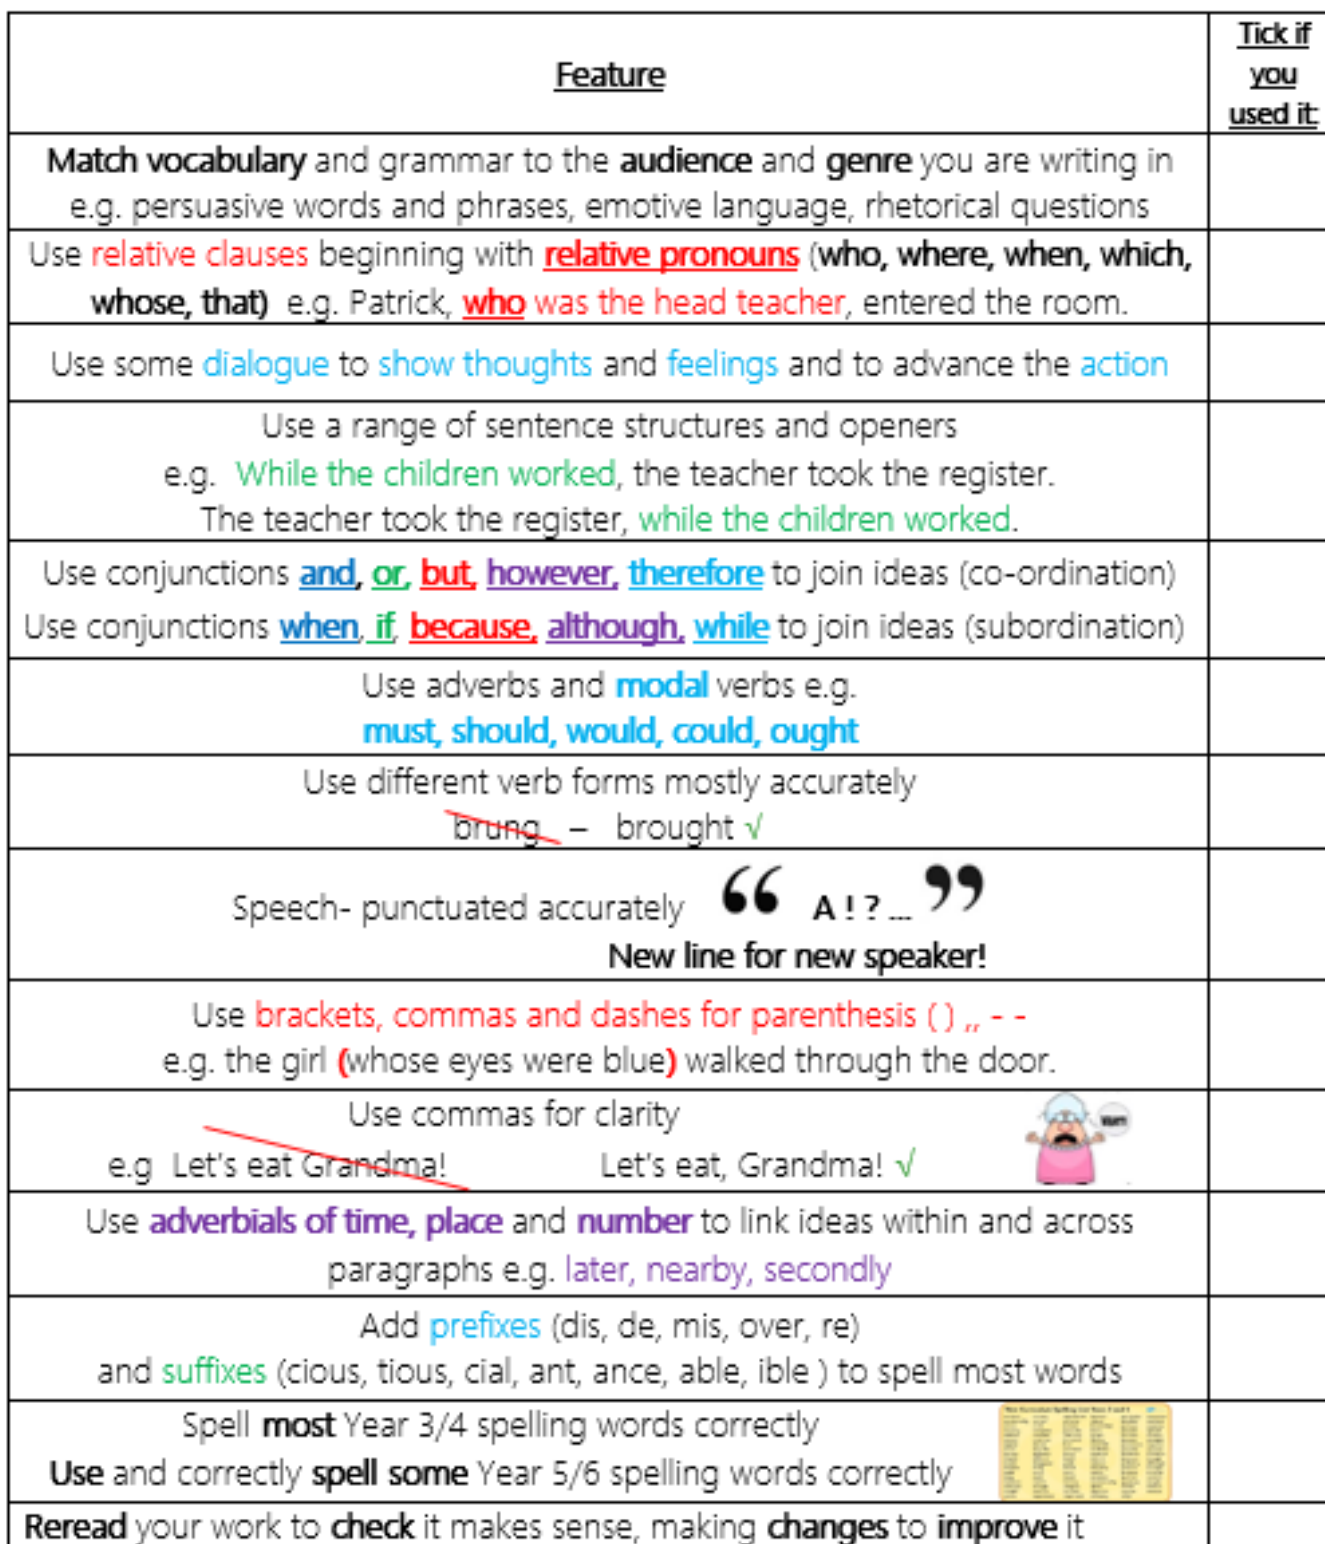 Feature
Tick if
you
used it:
Match vocabulary and grammar to the audience and genre you are writing in
e.g. persuasive words and phrases, emotive language, rhetorical questions
Use relative clauses beginning with relative pronouns (who, where, when, which,
whose, that) e.g. Patrick, who was the head teacher, entered the room.
Use some dialogue to show thoughts and feelings and to advance the action
Use a range of sentence structures and openers
e.g. While the children worked, the teacher took the register.
The teacher took the register, while the children worked.
Use conjunctions and, or, but, however, therefore to join ideas (co-ordination)
Use conjunctions when, if, because, although, while to join ideas (subordination)
Use adverbs and modal verbs e.g.
must, should, would, could, ought
Use different verb forms mostly accurately
brung – brought √
Speech- punctuated accurately “ A ! ? ... ”
New line for new speaker!
Use brackets, commas and dashes for parenthesis ( ) ,, - -
e.g. the girl (whose eyes were blue) walked through the door.
Use commas for clarity
e.g Let's eat Grandma! Let's eat, Grandma! √
Use adverbials of time, place and number to link ideas within and across
paragraphs e.g. later, nearby, secondly
Add prefixes (dis, de, mis, over, re)
and suffixes (cious, tious, cial, ant, ance, able, ible ) to spell most words
Spell most Year 3/4 spelling words correctly
Use and correctly spell some Year 5/6 spelling words correctly
Reread your work to check it makes sense, making changes to improve it